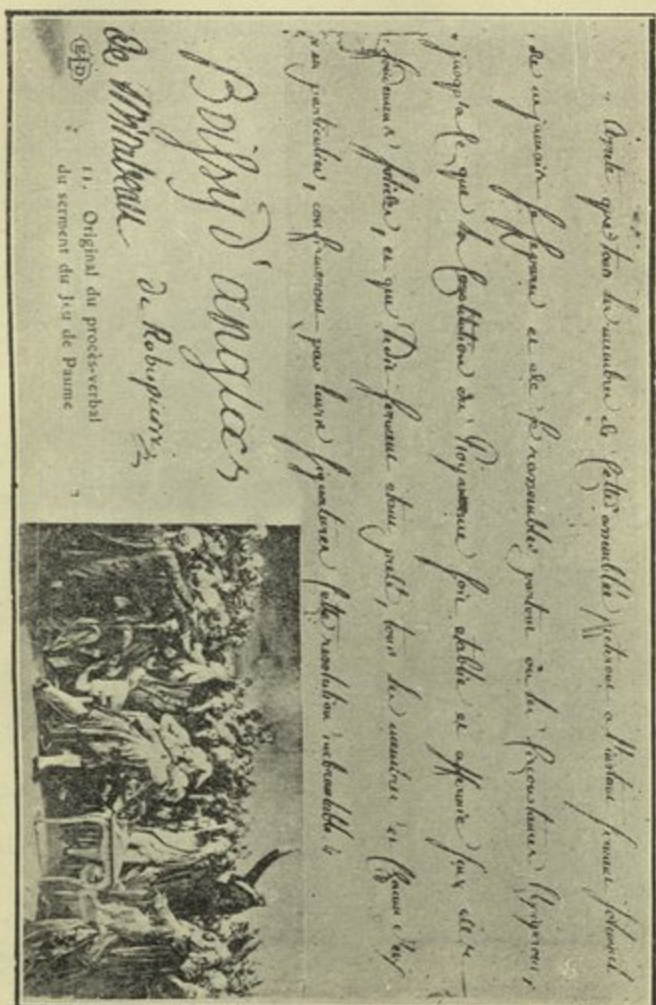 " Arrête que tous les membres de Cette assemblée preteront a l'instant serment solennel
" de ne jamais se separer et de se rassembler partout où les circonstances l'exigeront,
" jusqu'a ce que la Constitution du Royaume soit etablie et affermie sur des
fondemens solides, et que ledit serment etant preté, tous les membres et chacun d'eux
" en particulier, confirmeront par leurs signatures Cette resolution inebranlable "
Boissy d'anglas
De Mirabeau de Robespierre
ELD
11. Original du procès-verbal
du serment du Jeu de Paume